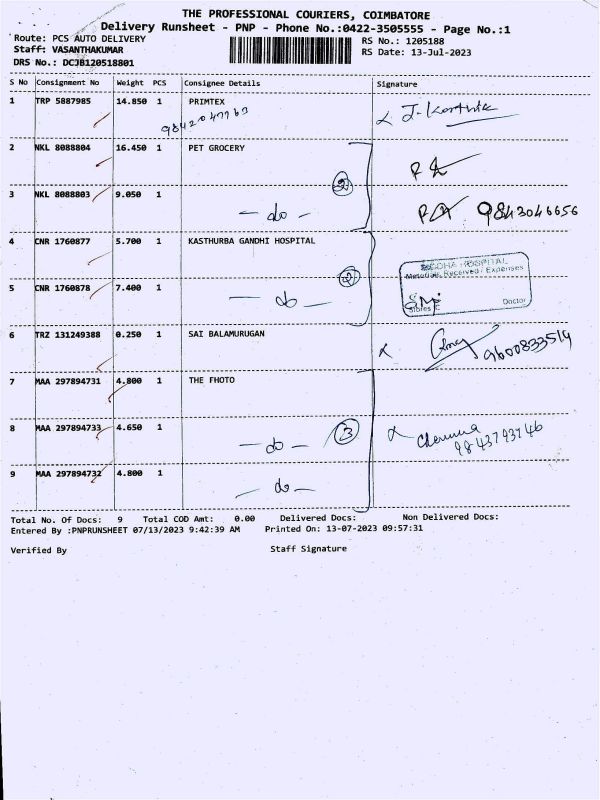 THE PROFESSIONAL COURIERS, COIMBATORE
Delivery Runsheet - PNP - Phone No.:0422-3505555 - Page No.:1
Route: PCS AUTO DELIVERY RS No.: 1205188
Staff: VASANTHAKUMAR RS Date: 13-Jul-2023
DRS No.: DCJB120518801
S No Consignment No Weight PCS Consignee Details Signature
1 TRP 5887985 14.850 1 PRIMTEX
2 NKL 8088804 16.450 1 PET GROCERY
2
3 NKL 8088803 9.050 1
- do - 9843046656
4 CNR 1760877 5.700 1 KASTHURBA GANDHI HOSPITAL
HOSPITAL
Materials Received / Expenses
2
5 CNR 1760878 7.400 1
- do - Stores Doctor
6 TRZ 131249388 0.250 1 SAI BALAMURUGAN
9600833514
7 MAA 297894731 4.800 1 THE FHOTO
8 MAA 297894733 4.650 1
- do - 3
9 MAA 297894732 4.800 1
- do -
Total No. Of Docs: 9 Total COD Amt: 0.00 Delivered Docs: Non Delivered Docs:
Entered By :PNPRUNSHEET 07/13/2023 9:42:39 AM Printed On: 13-07-2023 09:57:31
Verified By Staff Signature